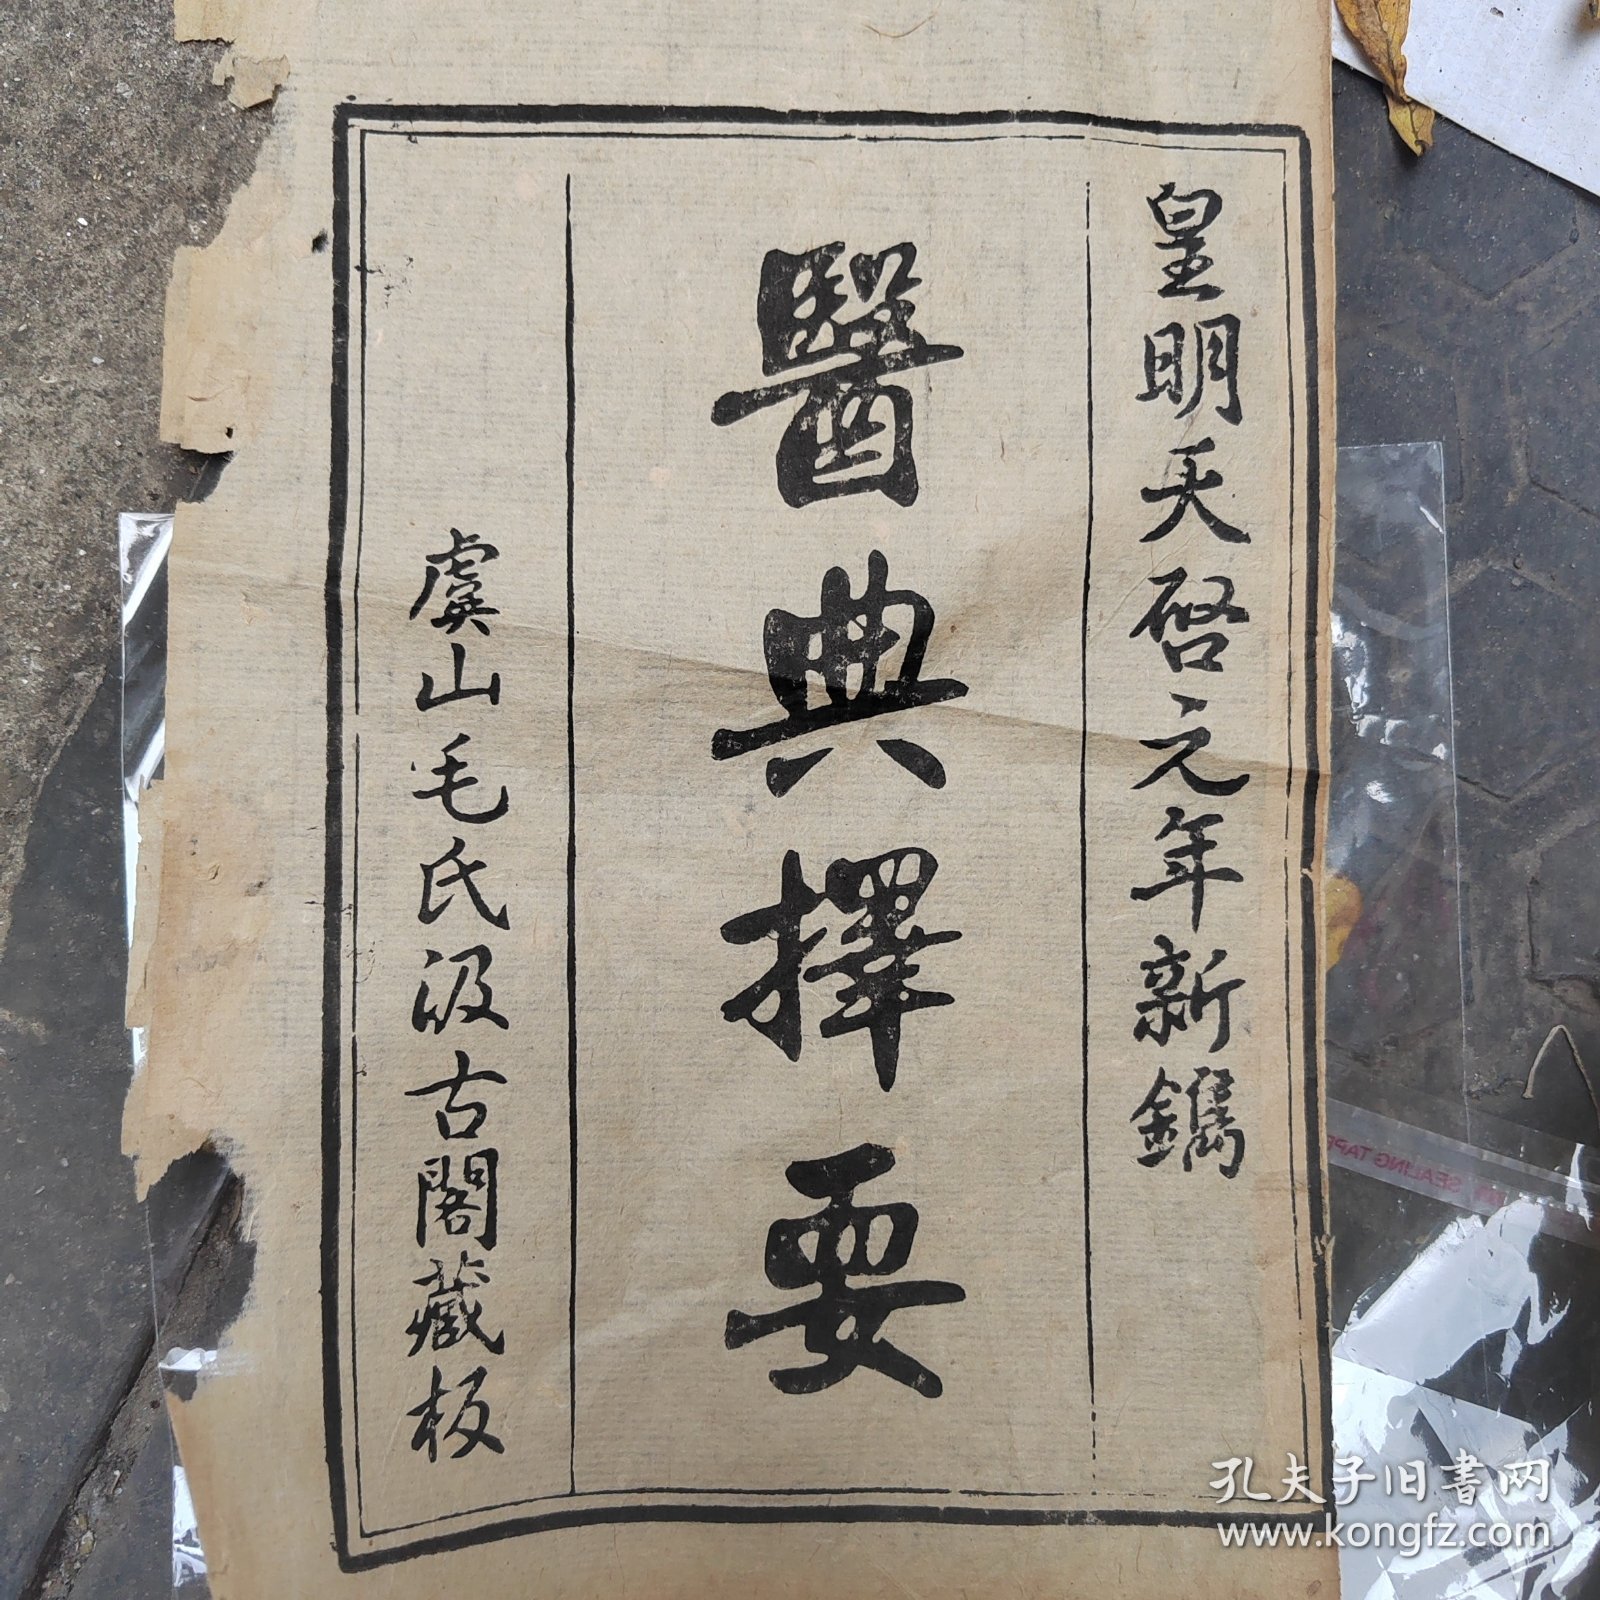 皇明天啓元年新鐫
醫典擇要
虞山毛氏汲古閣藏板
SEALING TAPE
孔夫子旧书网
www.kongfz.com